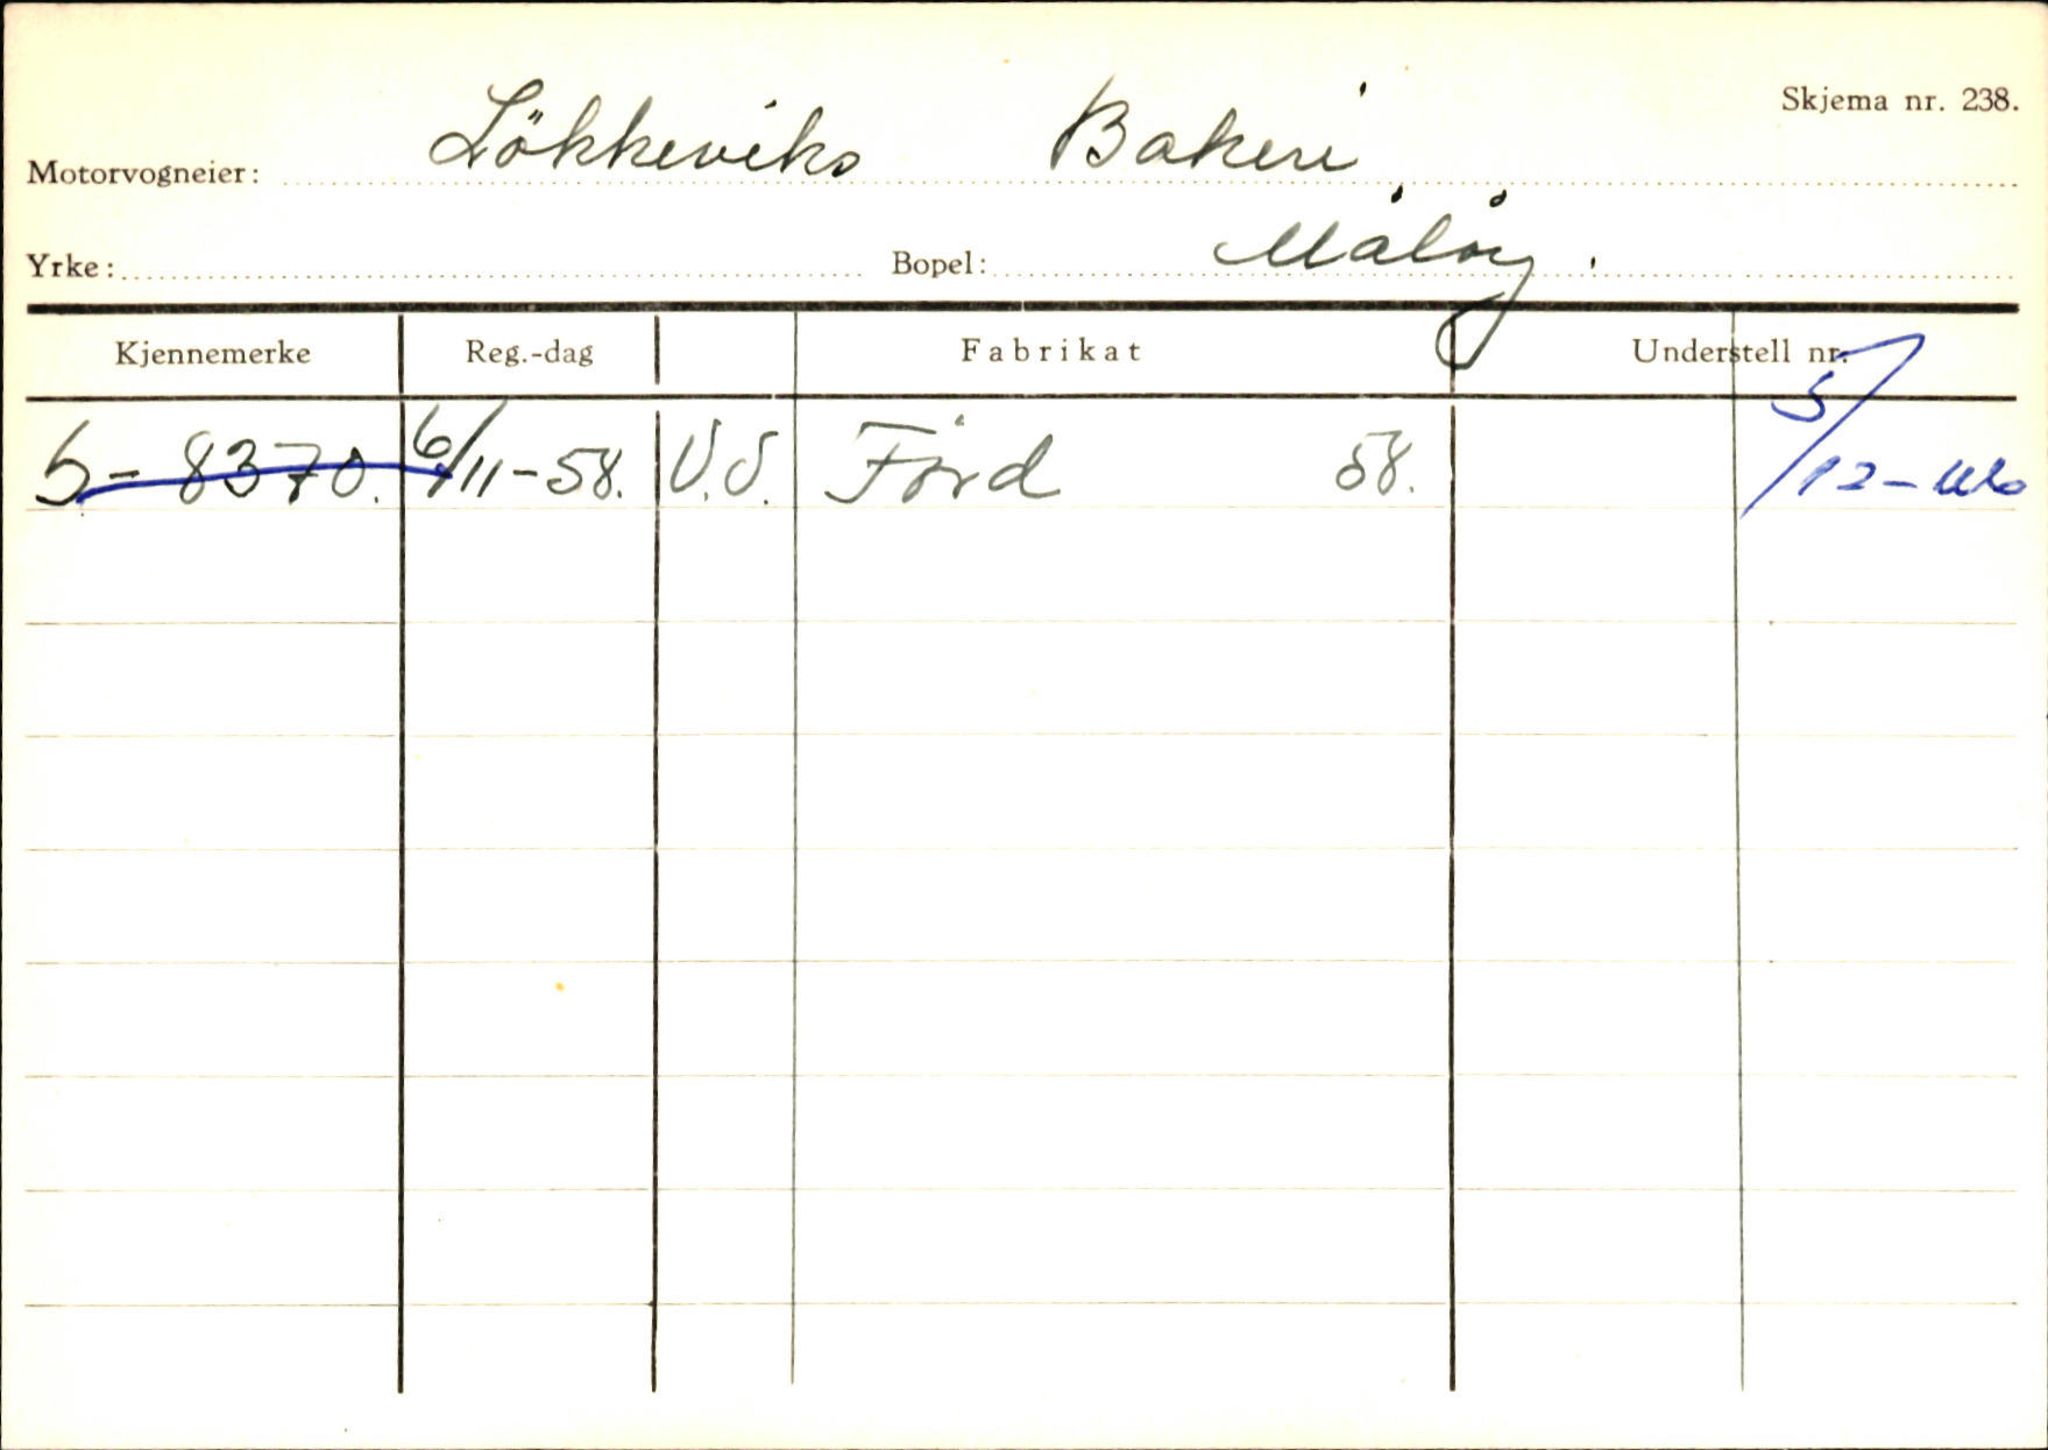 Skjema nr. 238.
Motorvogneier: Lökkeviks Bakeri
Yrke: Bopel: Måløy.
Kjennemerke Reg.-dag Fabrikat Understell nr.
S-8370. 6/11-58. V.V. Ford 58. 5/12-